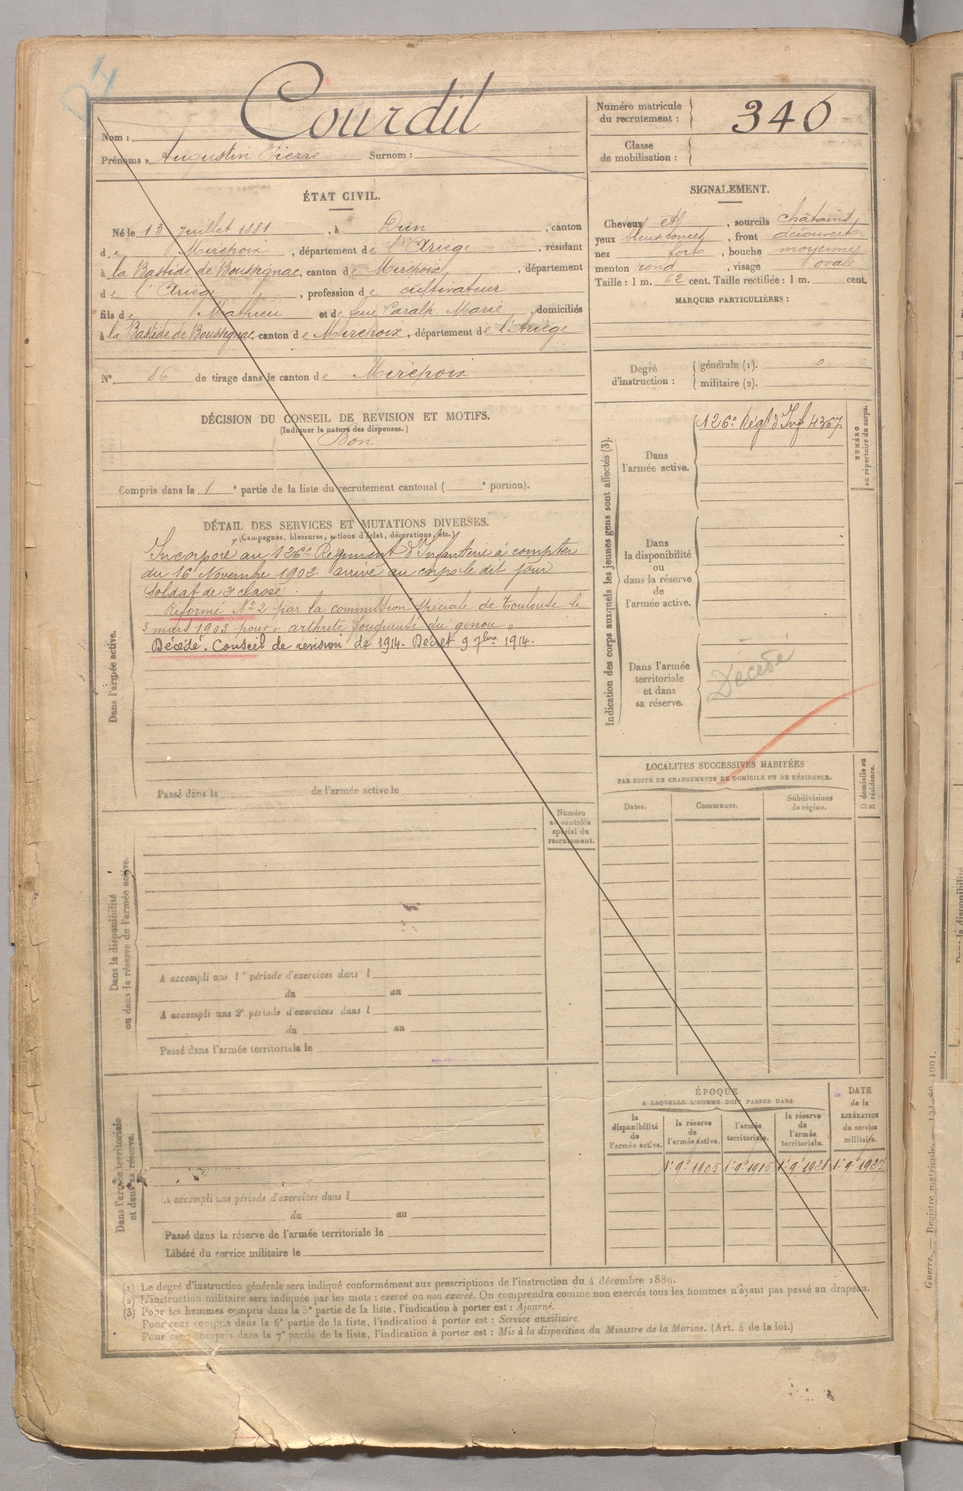 Nom : Courdil
Prénoms : Augustin Pierre Surnom :
Numéro matricule du recrutement : 340
Classe de mobilisation :
ÉTAT CIVIL.
Né le 13 Juillet 1881, à Dun, canton
de Mirepoix, département de l'Ariège, résidant
à la Bastide de Bousignac, canton de Mirepoix, département
de l'Ariège, profession de cultivateur
fils de Mathieu et de Caralp Marie domiciliés
à la Bastide de Bousignac, canton de Mirepoix, département de l'Ariège
N° 86 de tirage dans le canton de Mirepoix
SIGNALEMENT.
Cheveux et, sourcils châtains,
yeux bleus foncés, front découvert
nez fort, bouche moyenne
menton rond, visage ovale
Taille : 1 m. 62 cent. Taille rectifiée : 1 m. cent.
MARQUES PARTICULIÈRES :
Degré d'instruction : générale (1). 0
militaire (2).
DÉCISION DU CONSEIL DE REVISION ET MOTIFS.
(Indiquer la nature des dispenses.)
Bon
Compris dans la 1e partie de la liste du recrutement cantonal ( e portion).
DÉTAIL DES SERVICES ET MUTATIONS DIVERSES.
(Campagnes, blessures, actions d'éclat, décorations, etc.)
Dans l'armée active.
Incorporé au 126e Régiment d'Infanterie à compter
du 16 Novembre 1902. arrivé au corps le dit jour
soldat de 2e classe.
Réformé N° 2 par la commission spéciale de Toulouse le
3 mars 1903 pour « arthrite fongueuse du genou »
Décédé. Conseil de revision de 1914. Décret 9 7bre 1914.
Passé dans la de l'armée active le
Indication des corps auxquels les jeunes gens sont affectés (3).
NUMÉRO au répertoire du corps.
Dans l'armée active.
126e Régt d'Inf 4367
Dans la disponibilité ou dans la réserve de l'armée active.
Dans l'armée territoriale et dans sa réserve.
Décédé
LOCALITÉS SUCCESSIVES HABITÉES
PAR SUITE DE CHANGEMENTS DE DOMICILE OU DE RÉSIDENCE.
Dates. Communes. Subdivisions de région. D domicile ou R résidence.
Numéro au contrôle spécial du recrutement.
Dans la disponibilité ou dans la réserve de l'armée active.
A accompli une 1re période d'exercices dans l
du au
A accompli une 2e période d'exercices dans l
du au
Passé dans l'armée territoriale le
Dans l'armée territoriale et dans sa réserve.
A accompli une période d'exercices dans l
du au
Passé dans la réserve de l'armée territoriale le
Libéré du service militaire le
ÉPOQUE
A LAQUELLE L'HOMME DOIT PASSER DANS
la disponibilité de l'armée active.
la réserve de l'armée active.
l'armée territoriale.
la réserve de l'armée territoriale.
DATE de la LIBÉRATION du service militaire.
1er 9e 1905 1er 9e 1915 1er 9e 1921 1er 9e 1927
(1) Le degré d'instruction générale sera indiqué conformément aux prescriptions de l'instruction du 4 décembre 1889.
(2) L'instruction militaire sera indiquée par les mots : exercé ou non exercé. On comprendra comme non exercés tous les hommes n'ayant pas passé au drapeau.
(3) Pour les hommes compris dans la 5e partie de la liste, l'indication à porter est : Ajourné.
Pour ceux compris dans la 6e partie de la liste, l'indication à porter est : Service auxiliaire.
Pour ceux compris dans la 7e partie de la liste, l'indication à porter est : Mis à la disposition du Ministre de la Marine. (Art. 4 de la loi.)